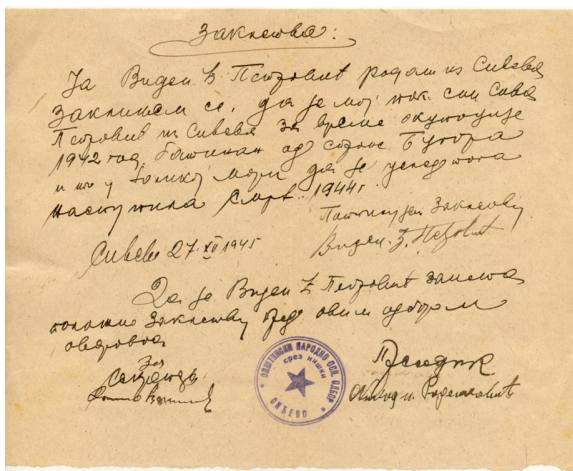 Заклетва:
Ја Виден Ђ. Петровић родом из Сићева
Заклињем се, да је мој пок. син Сава
Петровић из Сићева за време окупације
1942 год. батинан од стране Бугара
и то у толикој мери да је услед тога
наступила смрт. 1944 г.
Заклетву
Виден Ђ. Петровић
Сићево 27. XII 1945
Да је Виден Ђ. Петровић заиста
положио Заклетву пред овим одбором
оверава
За
Секретар
Председник
ОПШТИНСКИ НАРОДНО ОСЛ. ОДБОР
срез нишки
СИЋЕВО